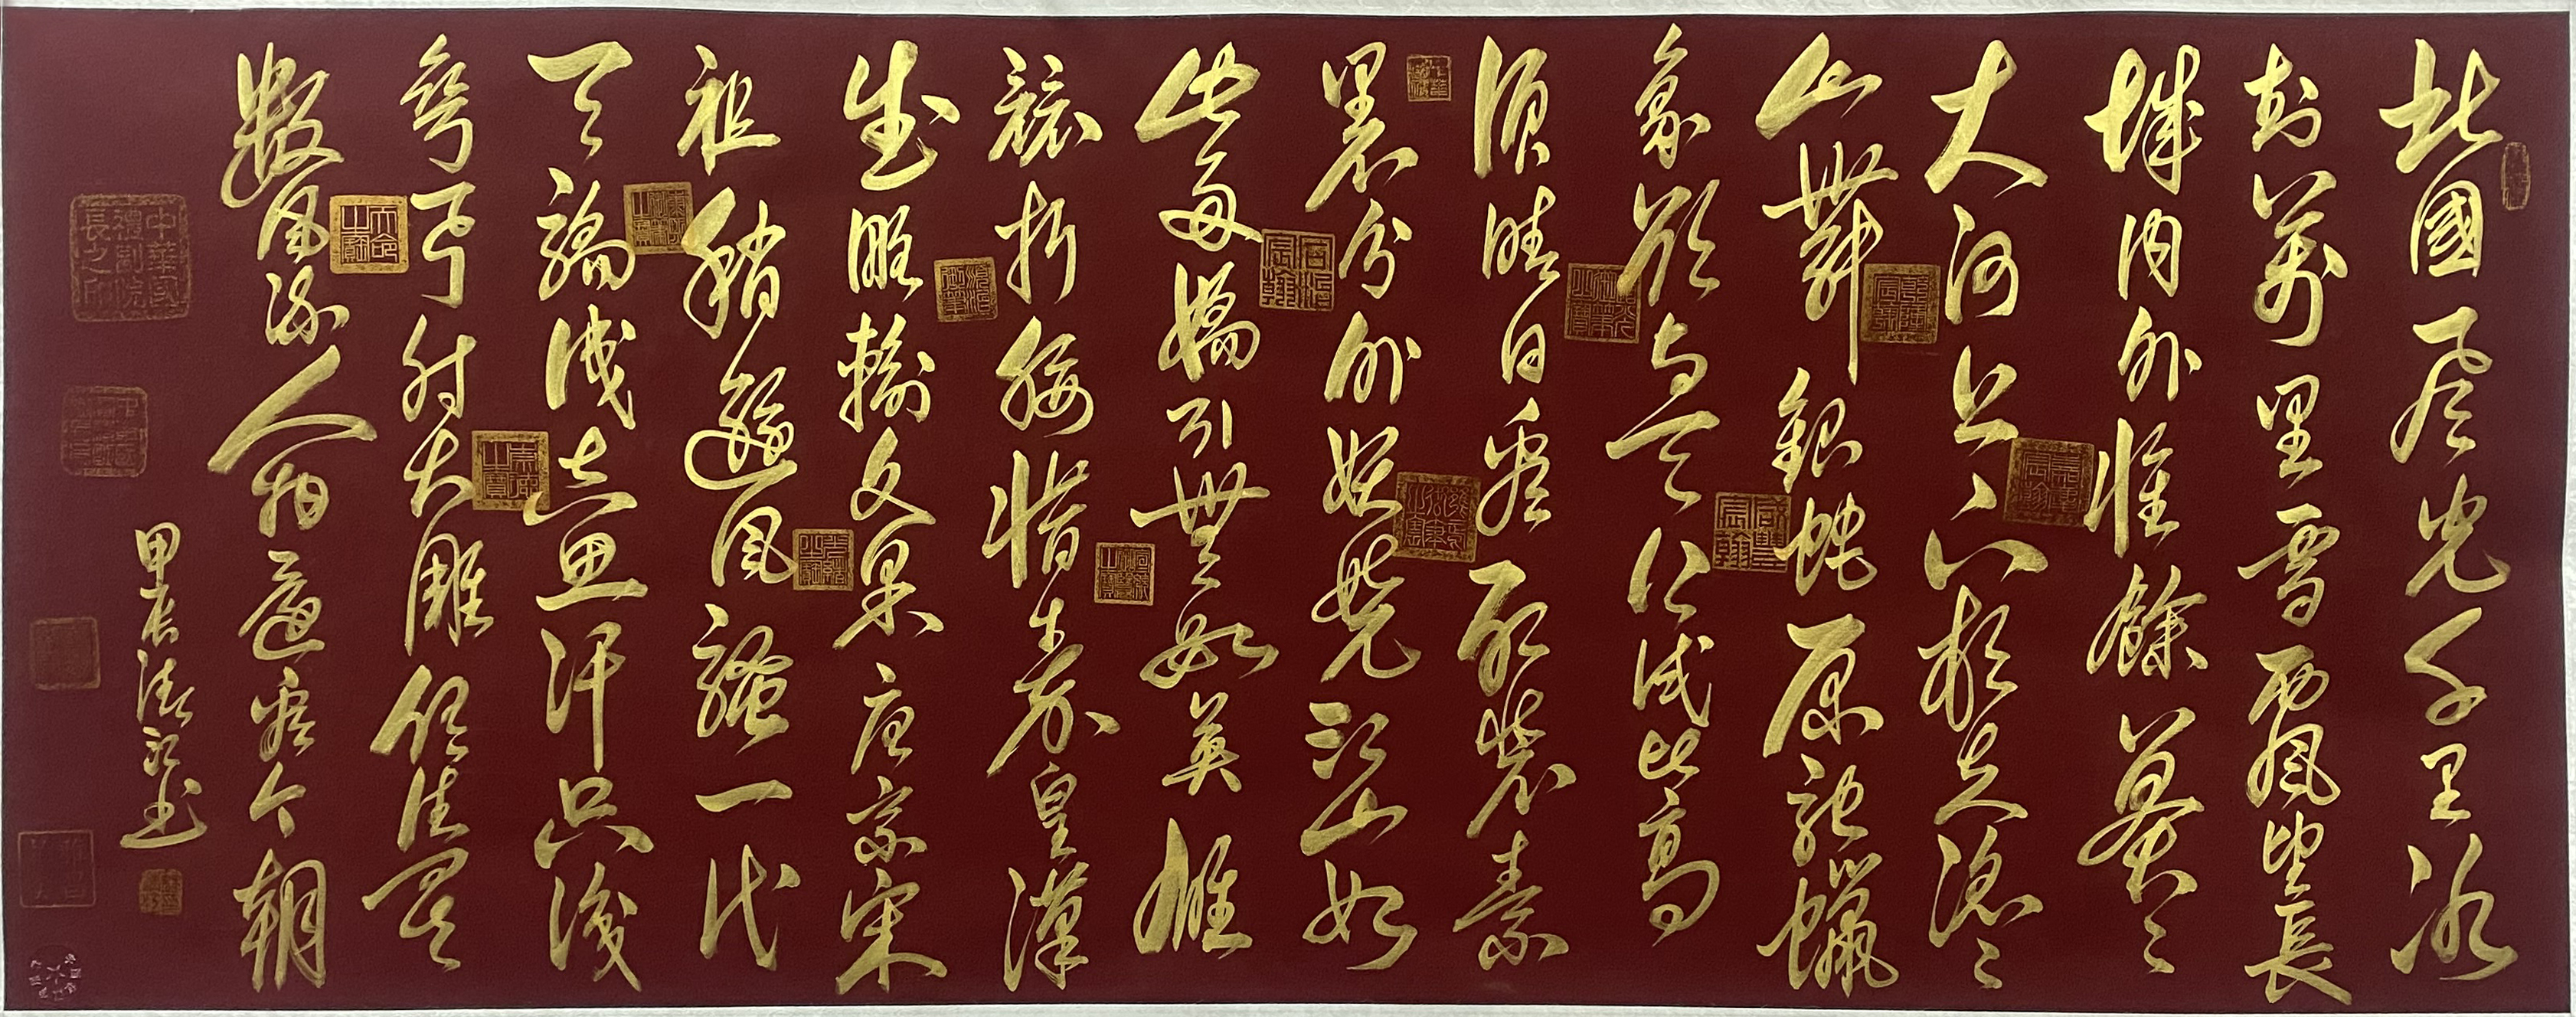 北國風光千里冰
封萬里雪飄望長
城內外惟餘莽々
大河上下頓失滔々
山舞銀蛇原馳蠟
象欲与天公試比高
須晴日看紅裝素
裹分外妖嬈江山如
此多嬌引無數英雄
競折腰惜秦皇漢
武略輸文采唐宗宋
祖稍遜風騷一代
天驕成吉思汗只識
彎弓射大雕俱往矣
數風流人物還看今朝
甲辰 書
中華國禮副院長之印